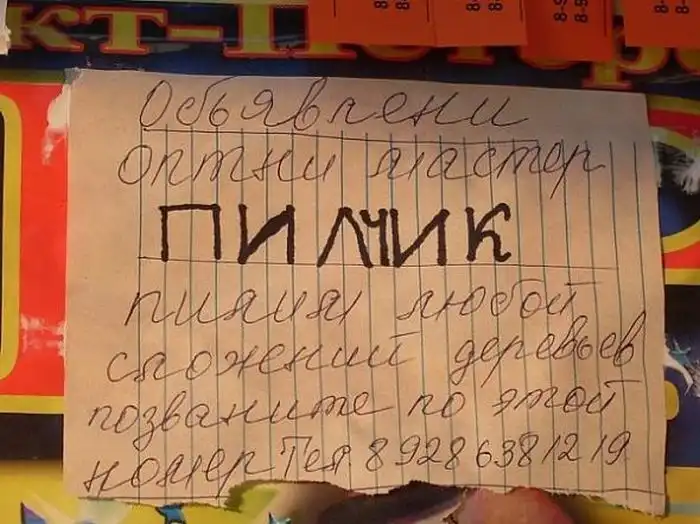 кт-Петер
8-9
8-9
Обьявлени
оптни мастор
ПИЛЧИК
пилим любой
сложений деревьев
позваните по этой
номер Тел 89286381219